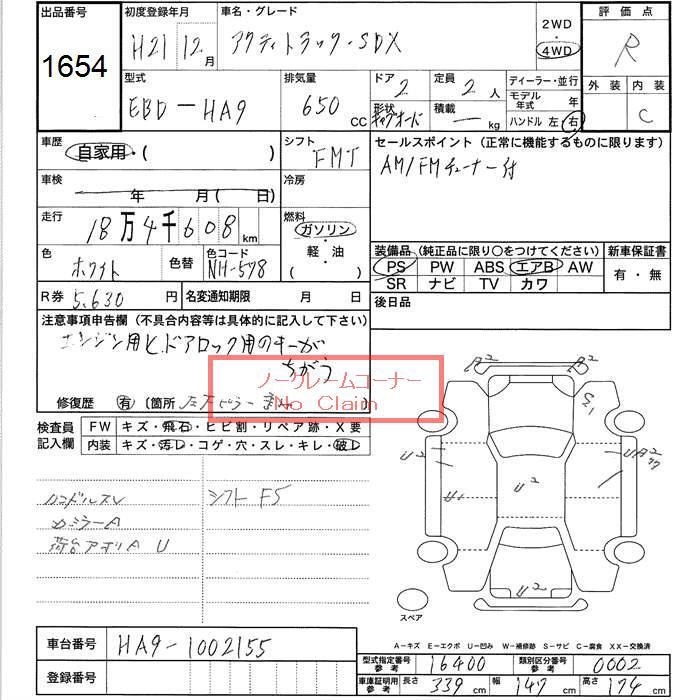 出品番号
1654
初度登録年月
H21 12月
車名・グレード
アクティトラック・SDX
2WD
4WD
評価点
R
外装
内装
C
型式
EBD-HA9
排気量
650 CC
ドア
2
形状
定員
2 人
積載
— kg
ディーラー・並行
モデル年式
年
ハンドル 左・右
車歴
自家用・( )
シフト
FMT
セールスポイント (正常に機能するものに限ります)
AM/FMチューナー付
車検
年 月(日)
冷房
走行
18万4千608 km
燃料
ガソリン・
軽・油
( )
色
ホワイト
色替
色コード
NH-578
装備品 (純正品に限り○をつけてください)
PS PW ABS エアB AW
SR ナビ TV カワ
新車保証書
有・無
R券 5,630 円
名変通知期限 月 日
後日品
注意事項申告欄 (不具合内容等は具体的に記入して下さい)
エンジン用とドアロック用のキーが
ちがう
ノークレームコーナー
No Claim
修復歴 有 〔箇所
検査員
記入欄
FW キズ・飛石・ヒビ割・リペア跡・X要
内装 キズ・汚レ・コゲ・穴・スレ・キレ・破レ
シフト F5
スペア
A-キズ E-エクボ U-凹み W-補修跡 S-サビ C-腐食 XX-交換済
車台番号 HA9-1002155
登録番号
型式指定番号 参考 16400
類別区分番号 参考 0002
車庫証明用 参考
長さ 339 cm 幅 147 cm 高さ 174 cm